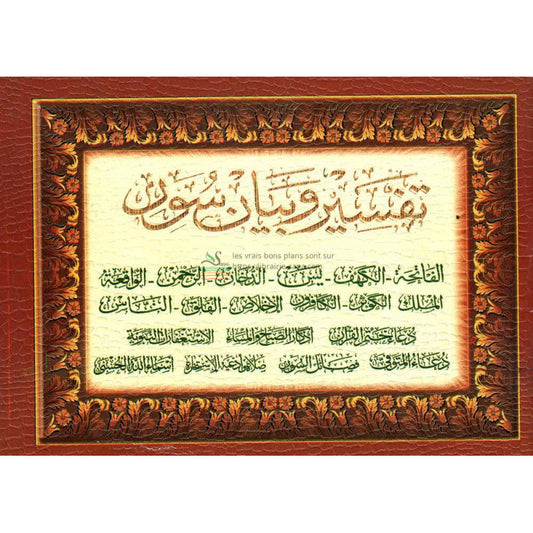 تفسير وبيان سور
les vrais bons plans sont sur
الفاتحة - الكهف - يس - الدخان - الرحمن - الواقعة
الملك - الكوثر - الكافرون - الإخلاص - الفلق - الناس
دعاء ختم القرآن أذكار الصباح والمساء الاستغفارات النبوية
دعاء المتوفى فضائل السور صلاة وأدعية الاستخارة أسماء الله الحسنى